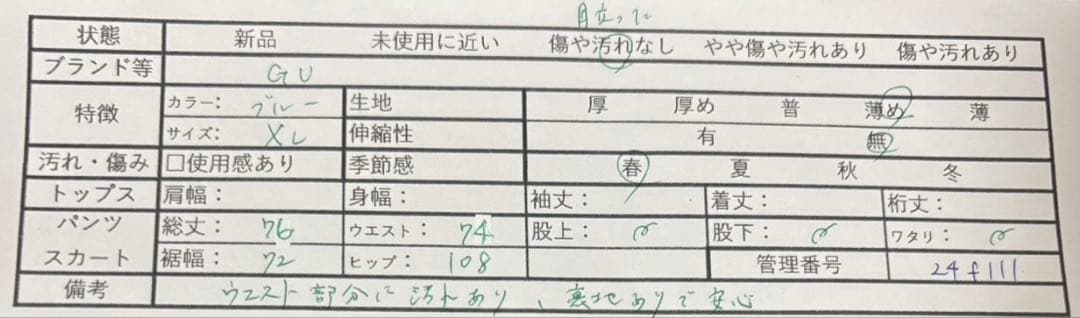 目立った
状態 新品 未使用に近い 傷や汚れなし やや傷や汚れあり 傷や汚れあり
ブランド等 GU
特徴 カラー: ブルー 生地 厚 厚め 普 薄め 薄
サイズ: XL 伸縮性 有 無
汚れ・傷み □使用感あり 季節感 春 夏 秋 冬
トップス 肩幅: 身幅: 袖丈: 着丈: 裄丈:
パンツ 総丈: 76 ウエスト: 74 股上: 股下: ワタリ:
スカート 裾幅: 72 ヒップ: 108 管理番号 24f111
備考 ウエスト部分に汚れあり、裏地ありで安心